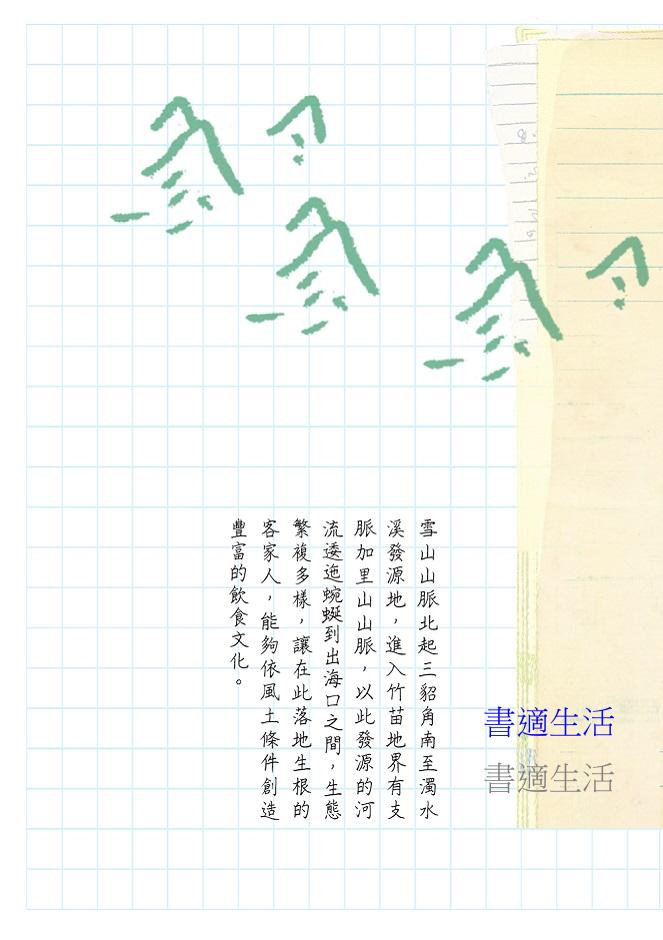 雪山山脈北起三貂角南至濁水
溪發源地，進入竹苗地界有支
脈加里山山脈，以此發源的河
流逶迤蜿蜒到出海口之間，生態
繁複多樣，讓在此落地生根的
客家人，能夠依風土條件創造
豐富的飲食文化。
書適生活
書適生活